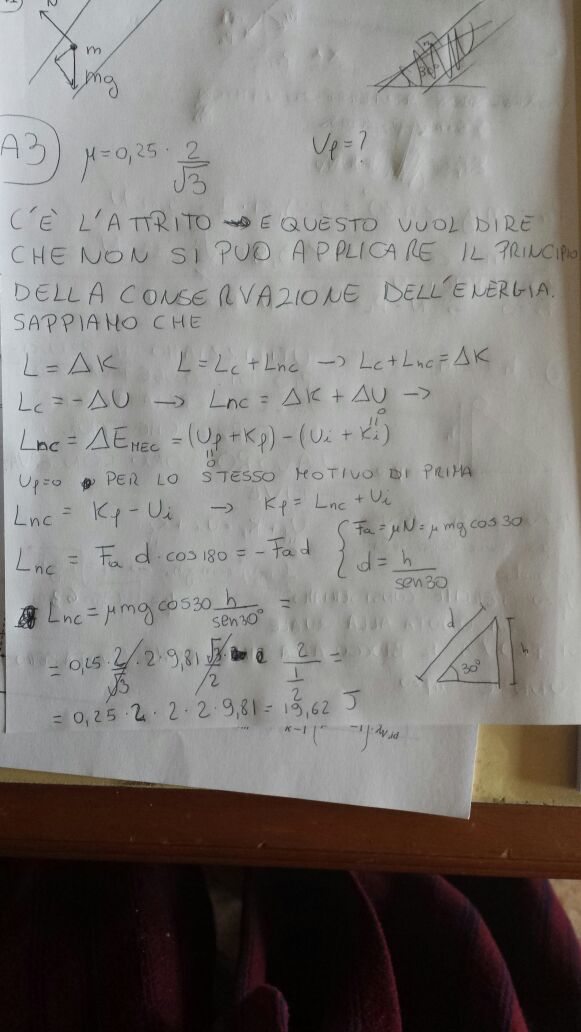 m
mg
A3 μ=0,25· 2/√3 Vf=?
C'È L'ATTRITO → E QUESTO VUOL DIRE
CHE NON SI PUÒ APPLICARE IL PRINCIPIO
DELLA CONSERVAZIONE DELL'ENERGIA.
SAPPIAMO CHE
L = ΔK L = Lc + Lnc → Lc + Lnc = ΔK
Lc = -ΔU → Lnc = ΔK + ΔU →
Lnc = ΔEMEC = (Uf + Kf) - (Ui + Ki)
=0 =0
Uf=0 PER LO STESSO MOTIVO DI PRIMA
Lnc = Kf - Ui → Kf = Lnc + Ui
Lnc = Fa d · cos 180 = -Fa d { Fa = μN = μ mg cos 30
d = h/sen30
Lnc = μmg cos30 h/sen30° =
= 0,25 · 2/√3 · 2 · 9,81 √3/2 · 2/(1/2) =
= 0,25 · 2 · 2 · 2 · 9,81 = 19,62 J
d h 30°